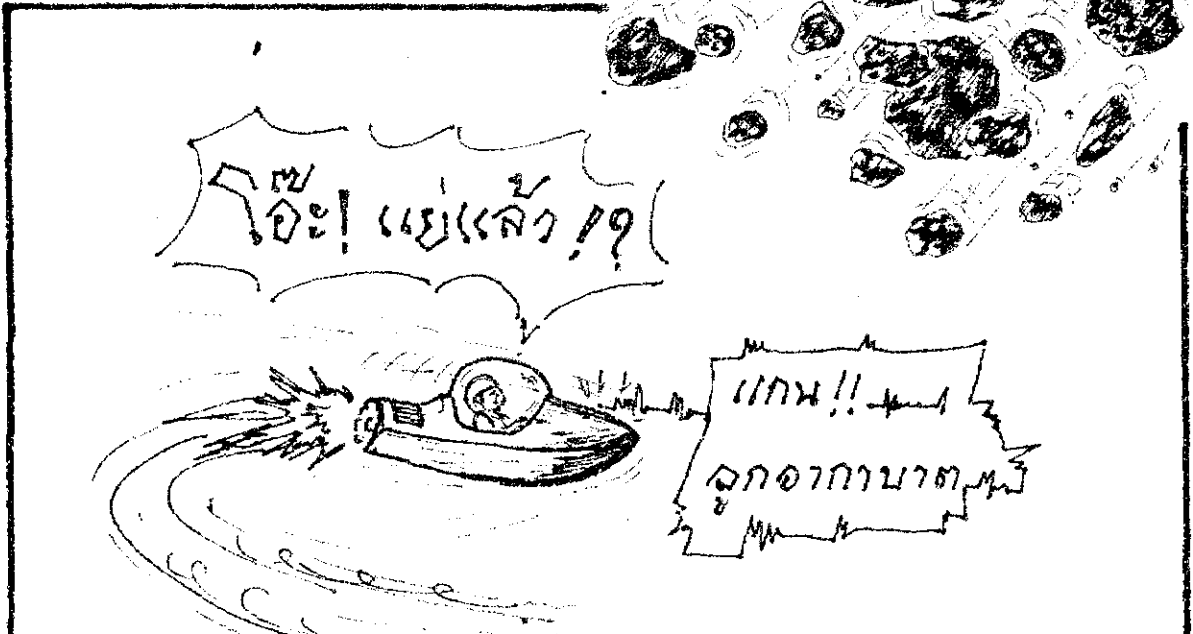 โอ๊ะ! แย่แล้ว!?
แกน!!
ลูกอุกาบาต